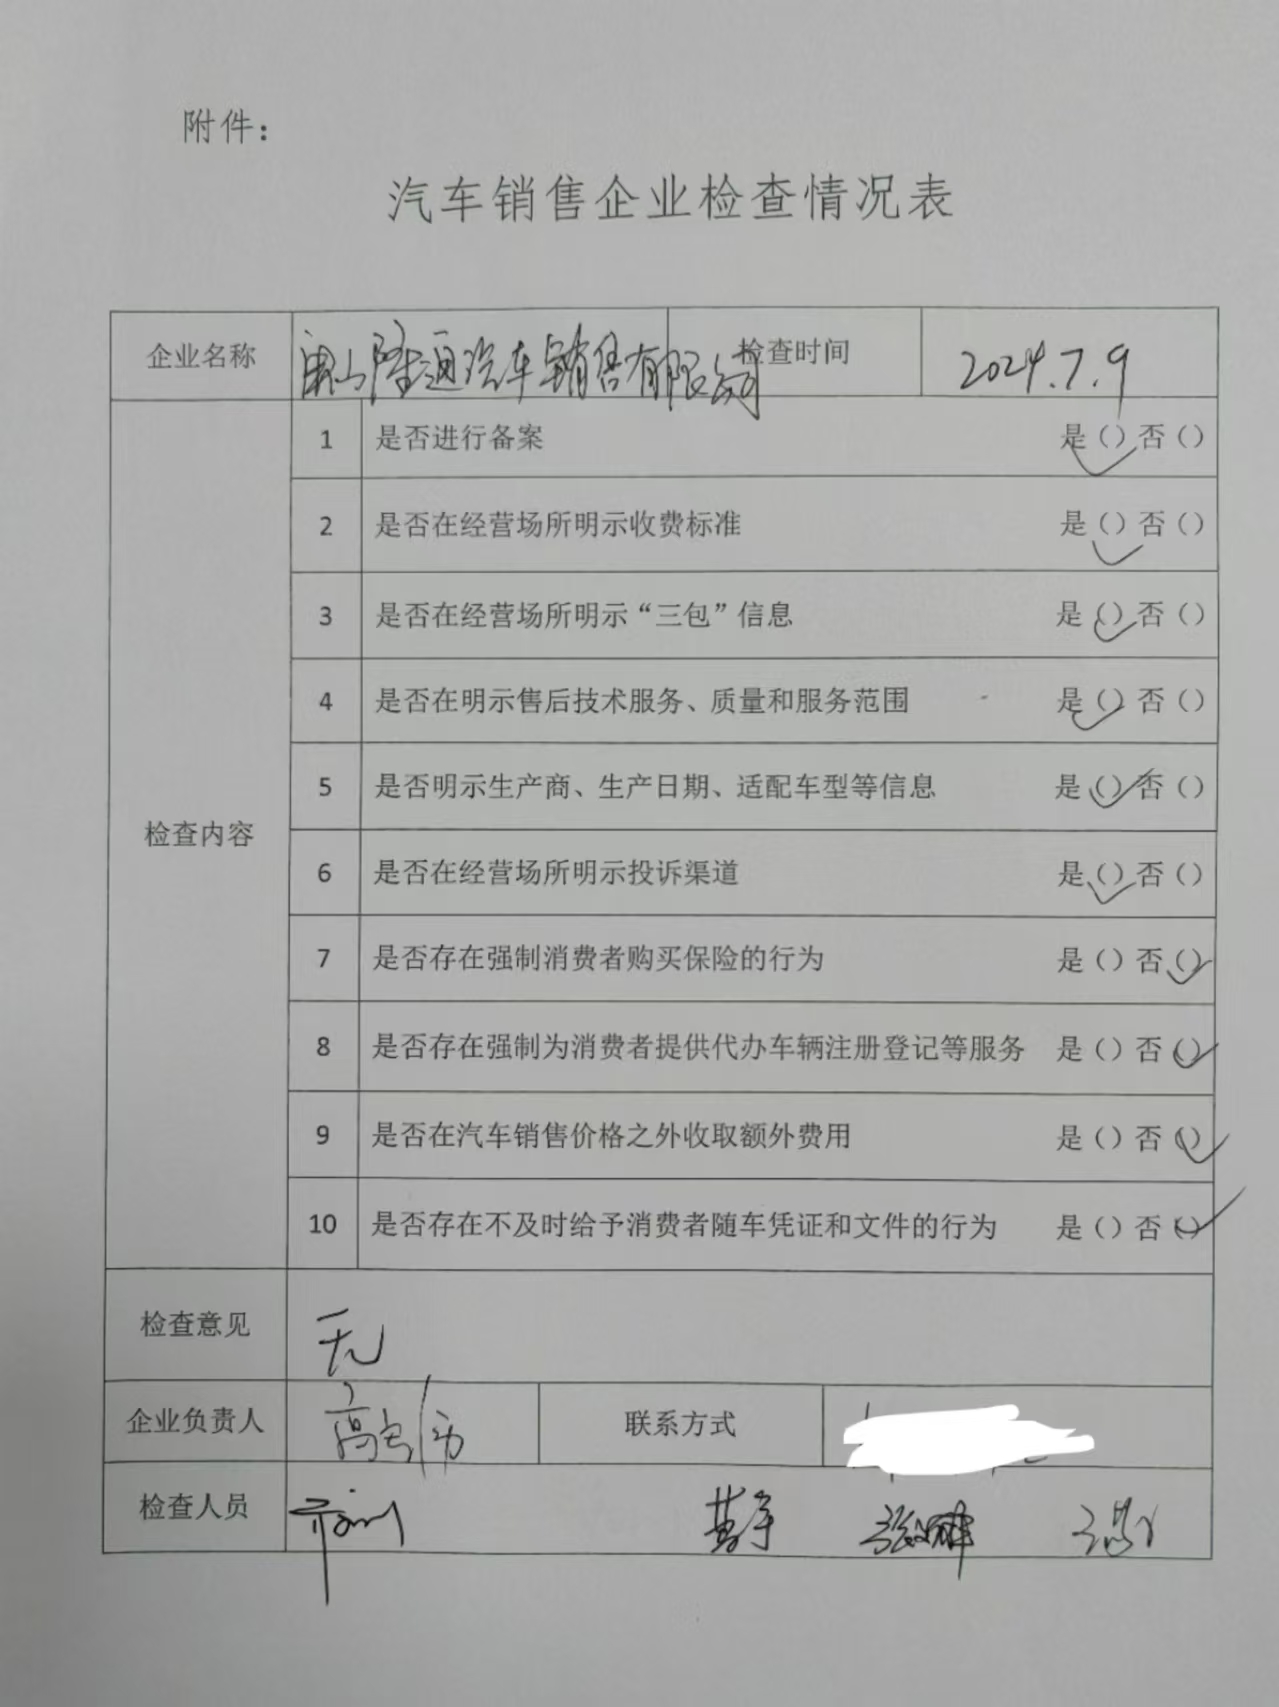 附件：
汽车销售企业检查情况表
企业名称 唐山隆通汽车销售有限公司 检查时间 2024.7.9
检查内容
1 是否进行备案 是（）否（）
2 是否在经营场所明示收费标准 是（）否（）
3 是否在经营场所明示“三包”信息 是（）否（）
4 是否在明示售后技术服务、质量和服务范围 是（）否（）
5 是否明示生产商、生产日期、适配车型等信息 是（）否（）
6 是否在经营场所明示投诉渠道 是（）否（）
7 是否存在强制消费者购买保险的行为 是（）否（）
8 是否存在强制为消费者提供代办车辆注册登记等服务 是（）否（）
9 是否在汽车销售价格之外收取额外费用 是（）否（）
10 是否存在不及时给予消费者随车凭证和文件的行为 是（）否（）
检查意见 无
企业负责人 高 联系方式
检查人员